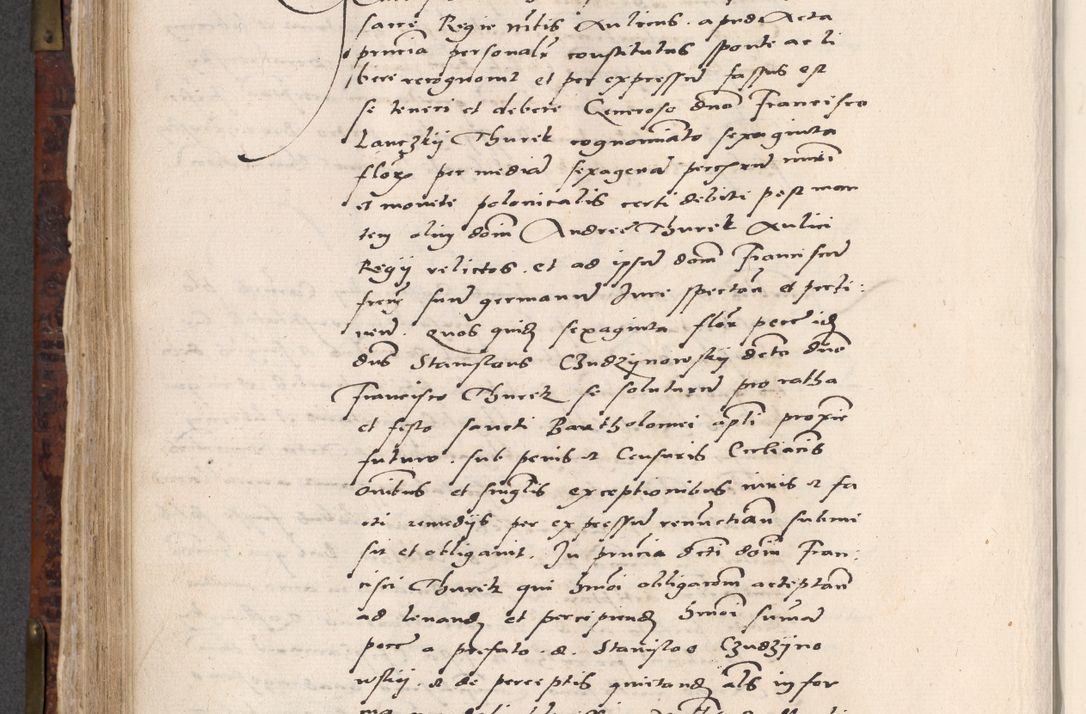 sacre Regie mtis Aulicus. apud Acta
pruncia personalr constitutus sponte ac li
bere recognovit et per expressu fassus est
se teneri et debere Generoso dno Francisco
Lanczkij Thurek cognominato sexaginta
flor per mediu sexagena pecuniar numi
et monete polonicalis certi debite post mor
tem olim dom Andree Thurek Aulici
Regij relictos. et ad ipsu dom Franciscu
fratre suu germanu Jure spectan et perti:
nen. quos quid sexaginta flor pere idz
dns Stanislaus Czudzynowskij dcto dno
Francisco Thurek se soluturu pro ratha
et festo sancti Bartholomei apti proxie
futuro. sub penis et Censuris Ecclianis
onibus et singlis exceptionibus iuris et fa
cti remedijs per expressu renuctian submi
sit et obligavit. In pruncia dcti dom Fran:
cisci Thurek qui hmoi obligacom acceptan
ad levand et percipiend hmoi suma
pece a prefato. d. Stanislao Czudzyno
wskij. et de perceptis quietand als in for